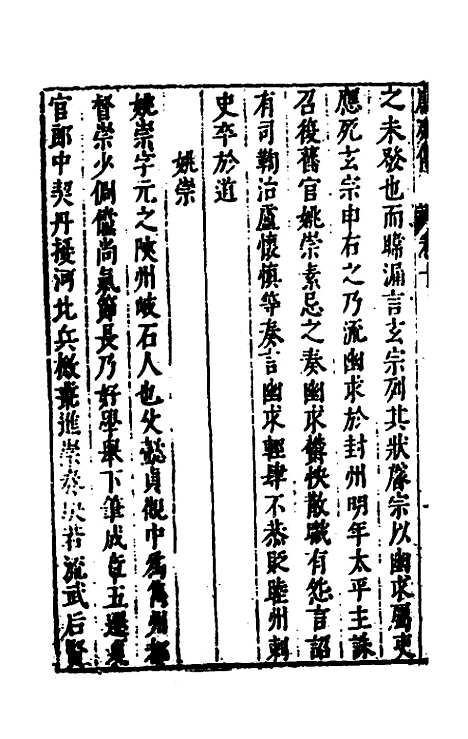 之未發也而暐漏言玄宗列其狀睿宗以幽求屬吏
應死玄宗申右之乃流幽求於封州明年太平主誅
召復舊官姚崇素忌之奏幽求鬱怏散職有怨言詔
有司鞫治盧懷慎等奏言幽求輕肆不恭貶睦州刺
史卒於道
姚崇
姚崇字元之陝州峽石人也父懿貞觀中為巂州都
督崇少倜儻尚氣節長乃好學舉下筆成章五遷夏
官郎中契丹擾河北兵檄叢進崇奏決若流武后賢